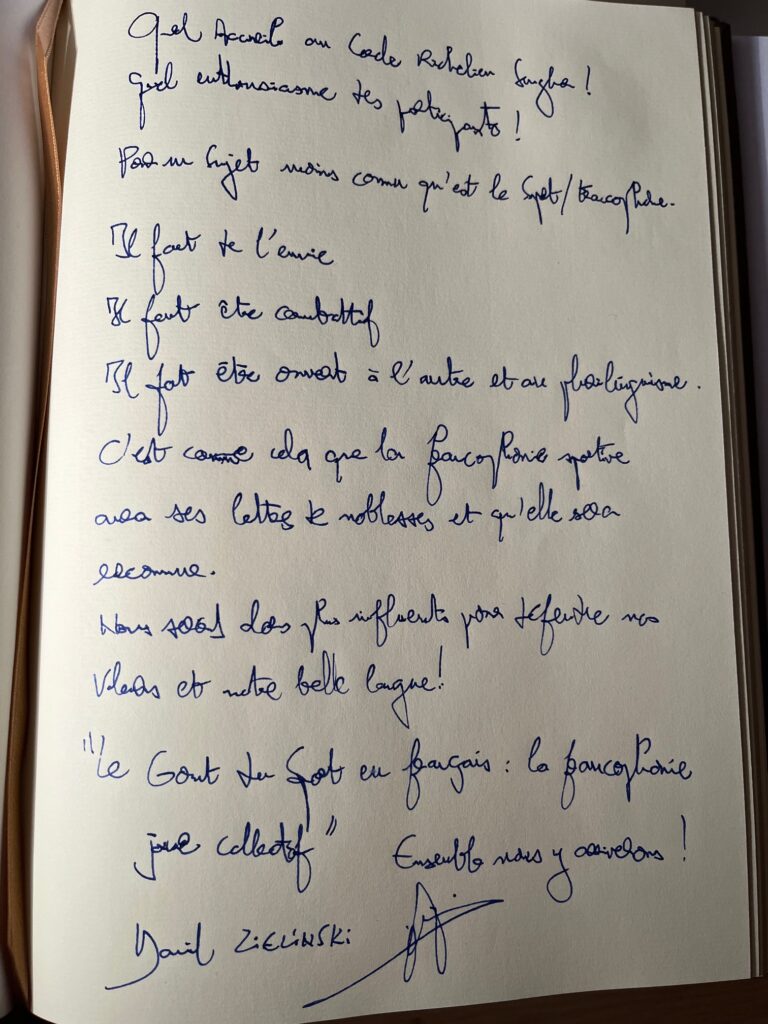 Quel Accueil au Cercle Richelieu Senghor !
quel enthousiasme des participants !
Pour un sujet moins connu qu'est le Sport/francophonie.
Il faut de l'envie
Il faut être combattif
Il faut être ouvert à l'autre et au plurilinguisme.
C'est comme cela que la francophonie sportive
aura ses lettres de noblesses et qu'elle sera
reconnue.
Nous serons alors plus influents pour défendre nos
Valeurs et notre belle langue !
"Le Gout du Sport en français : la francophonie
joue collectif" Ensemble nous y arriverons !
Daniel ZIELINSKI